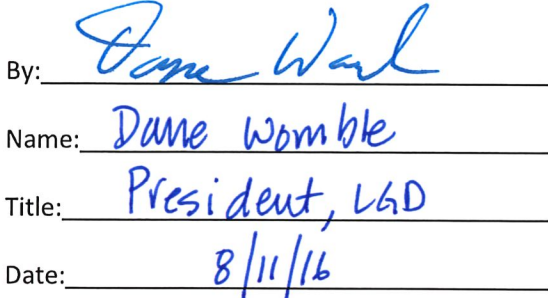 By: Dane Womble
Name: Dane Womble
Title: President, LGD
Date: 8/11/16